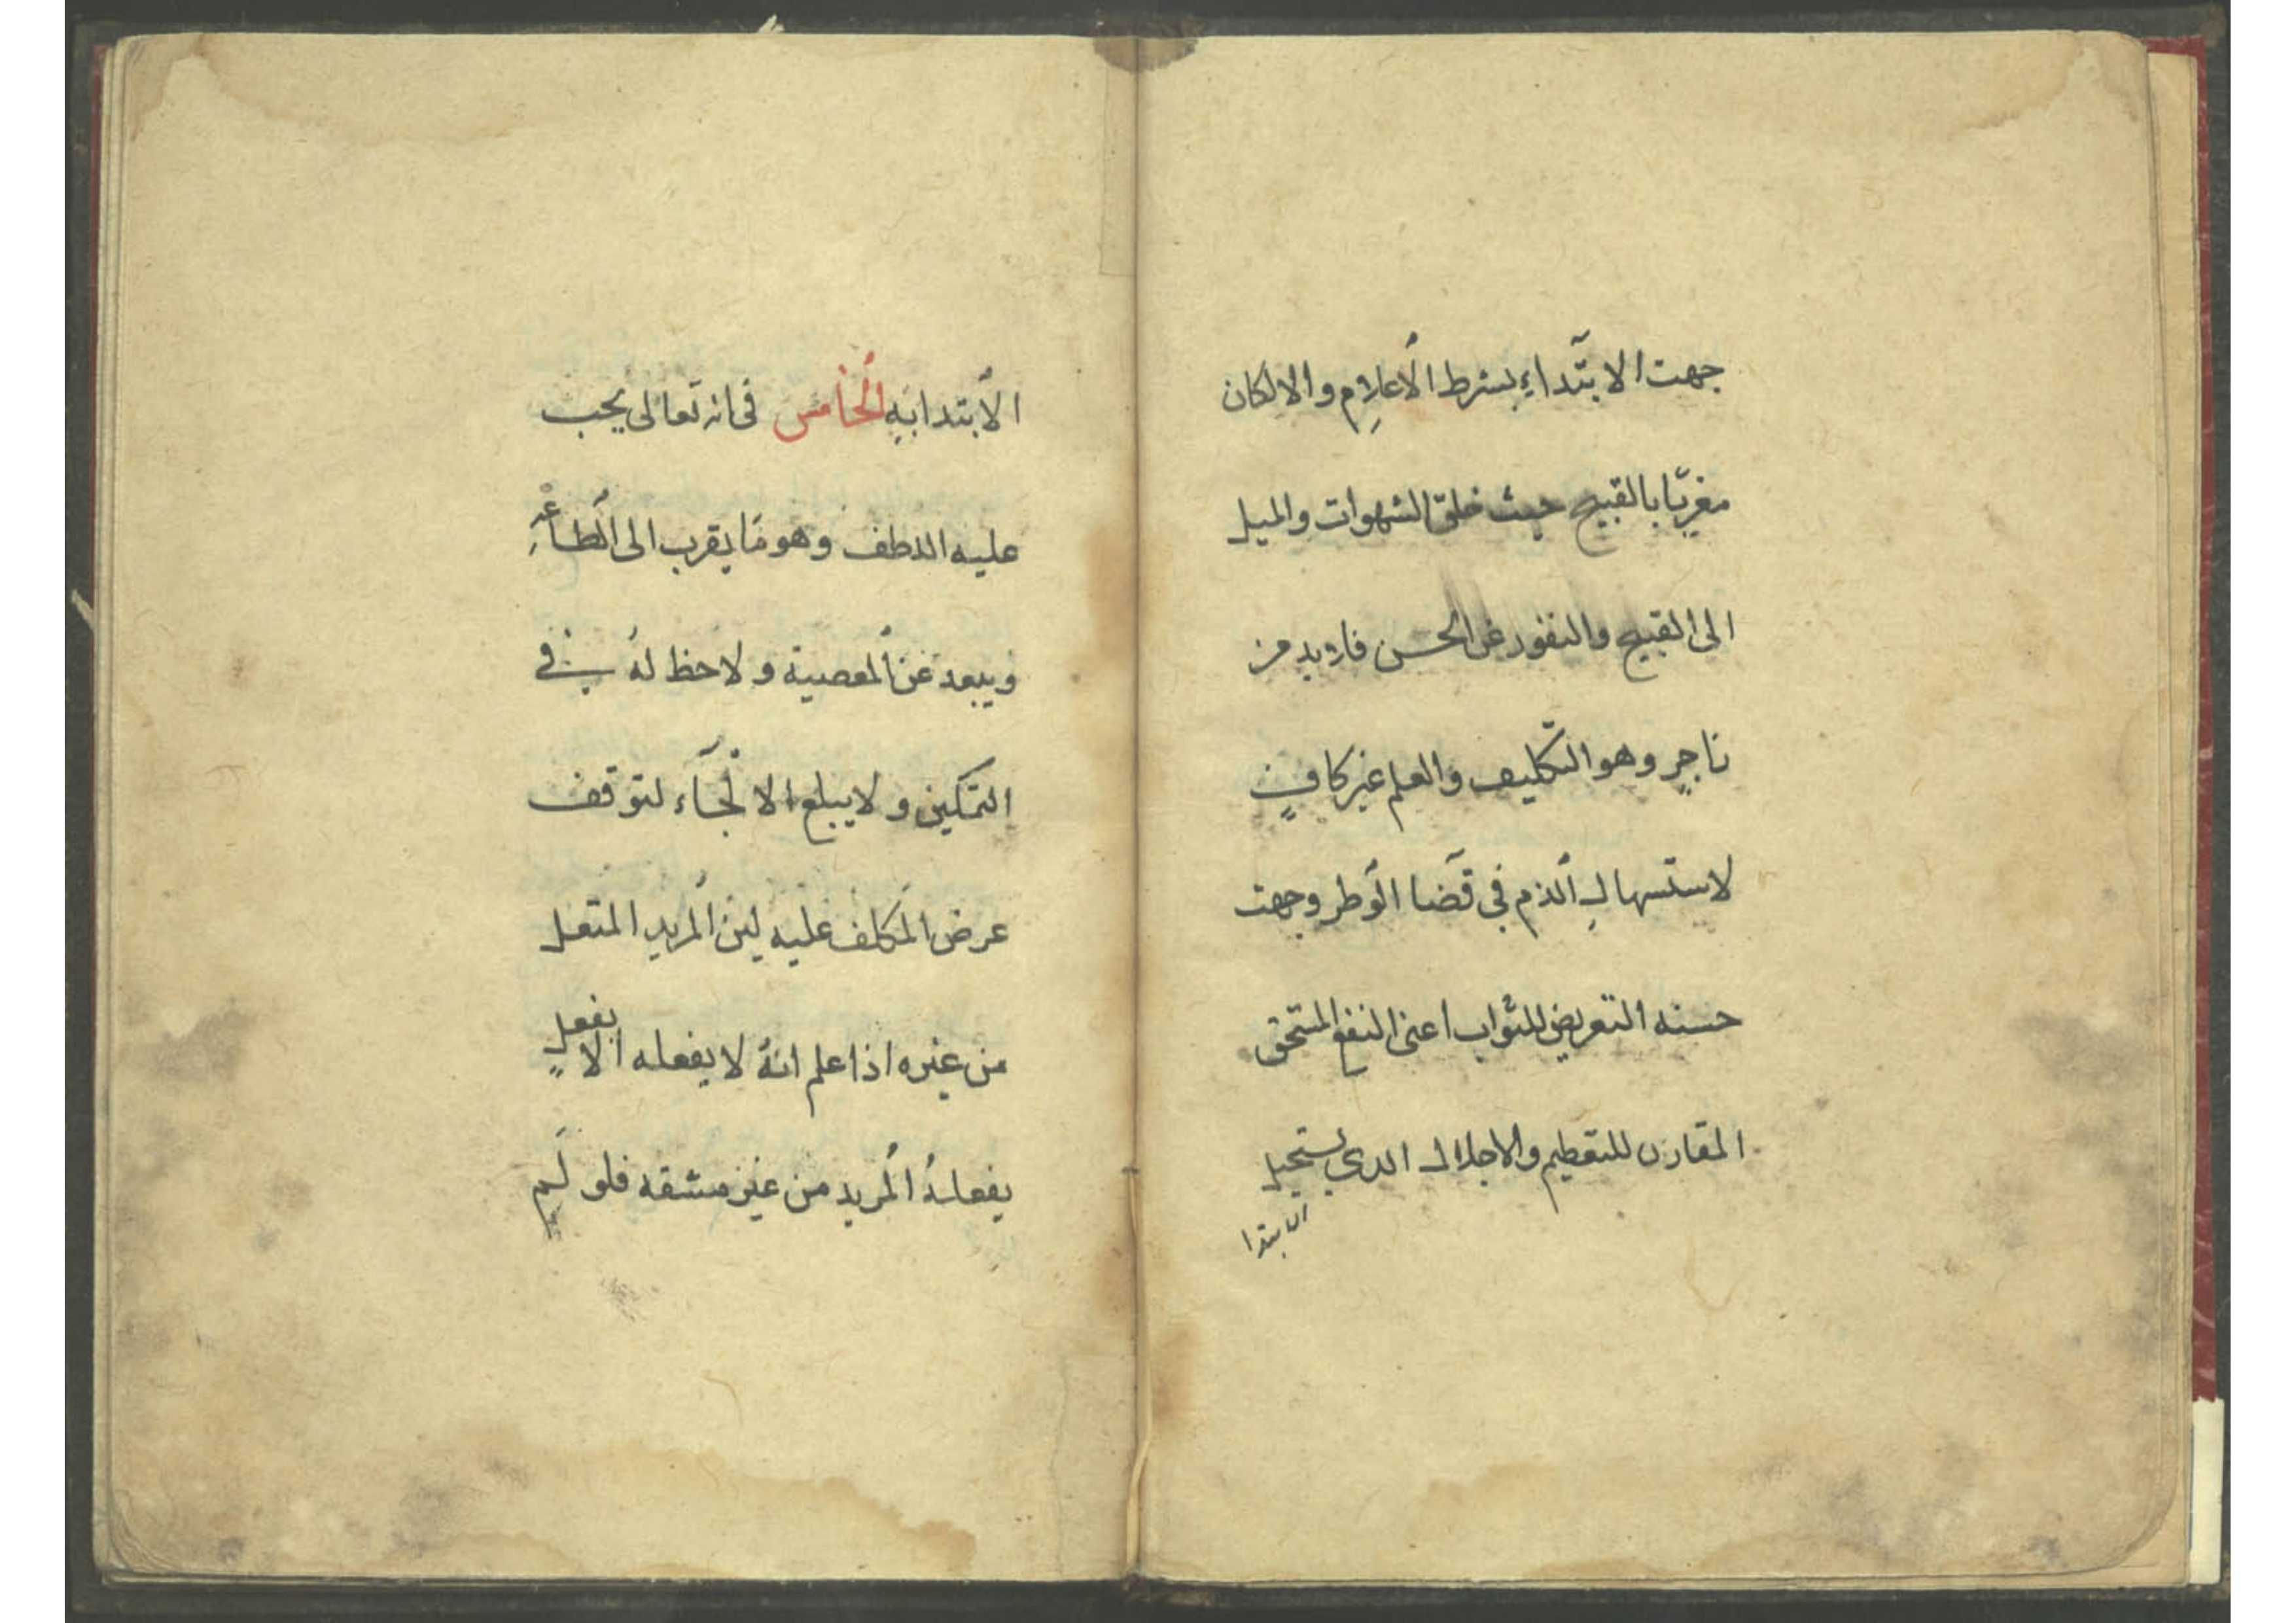 جهت الابتداء بشرط الاعلام والا لكان
مغريّا بالقبيح حيث خلق الشهوات والميل
الى القبيح والنفور عن الحسن فلابد من
زاجرٍ وهو التكليف والعلم غير كافٍ
لاستسهال الذم فى قضا الوطر وجهت
حسنه التعريض للثواب اعنى النفع المستحق
المقارن للتعظيم والاجلال الدي يستحيل
الابتدا
الابتدا به الخامس فى انه تعالى يجب
عليه اللطف وهو ما يقرب الى الطاعة
ويبعد عن المعصية و لا حظ له فى
التمكين ولا يبلغ الالجآء لتوقف
عرض المكلف عليه لين المريد المتعل
من غيره اذا علم انهُ لا يفعله الا بفعل
يفعلهُ المريد من غير مشقه فلو لَم